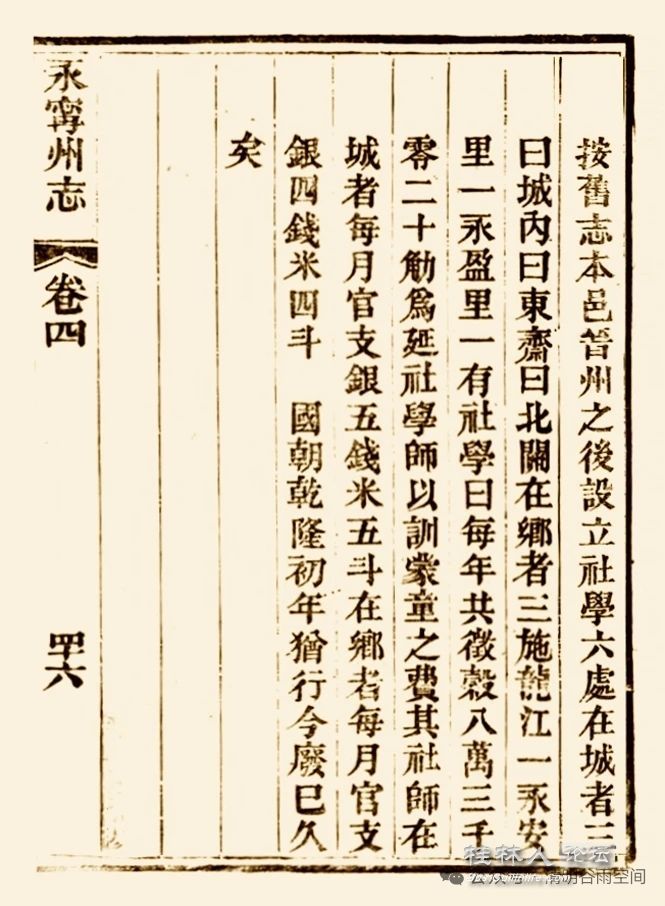 按舊志本邑晉州之後設立社學六處在城者三
曰城內曰東齋曰北關在鄉者三施龍江一永安
里一永盈里一有社學曰每年共徵穀八萬三千
零二十觔為延社學師以訓蒙童之費其社師在
城者每月官支銀五錢米五斗在鄉者每月官支
銀四錢米四斗　國朝乾隆初年猶行今廢已久
矣
永寧州志
卷四
四十六
桂林人论坛
谷雨空间